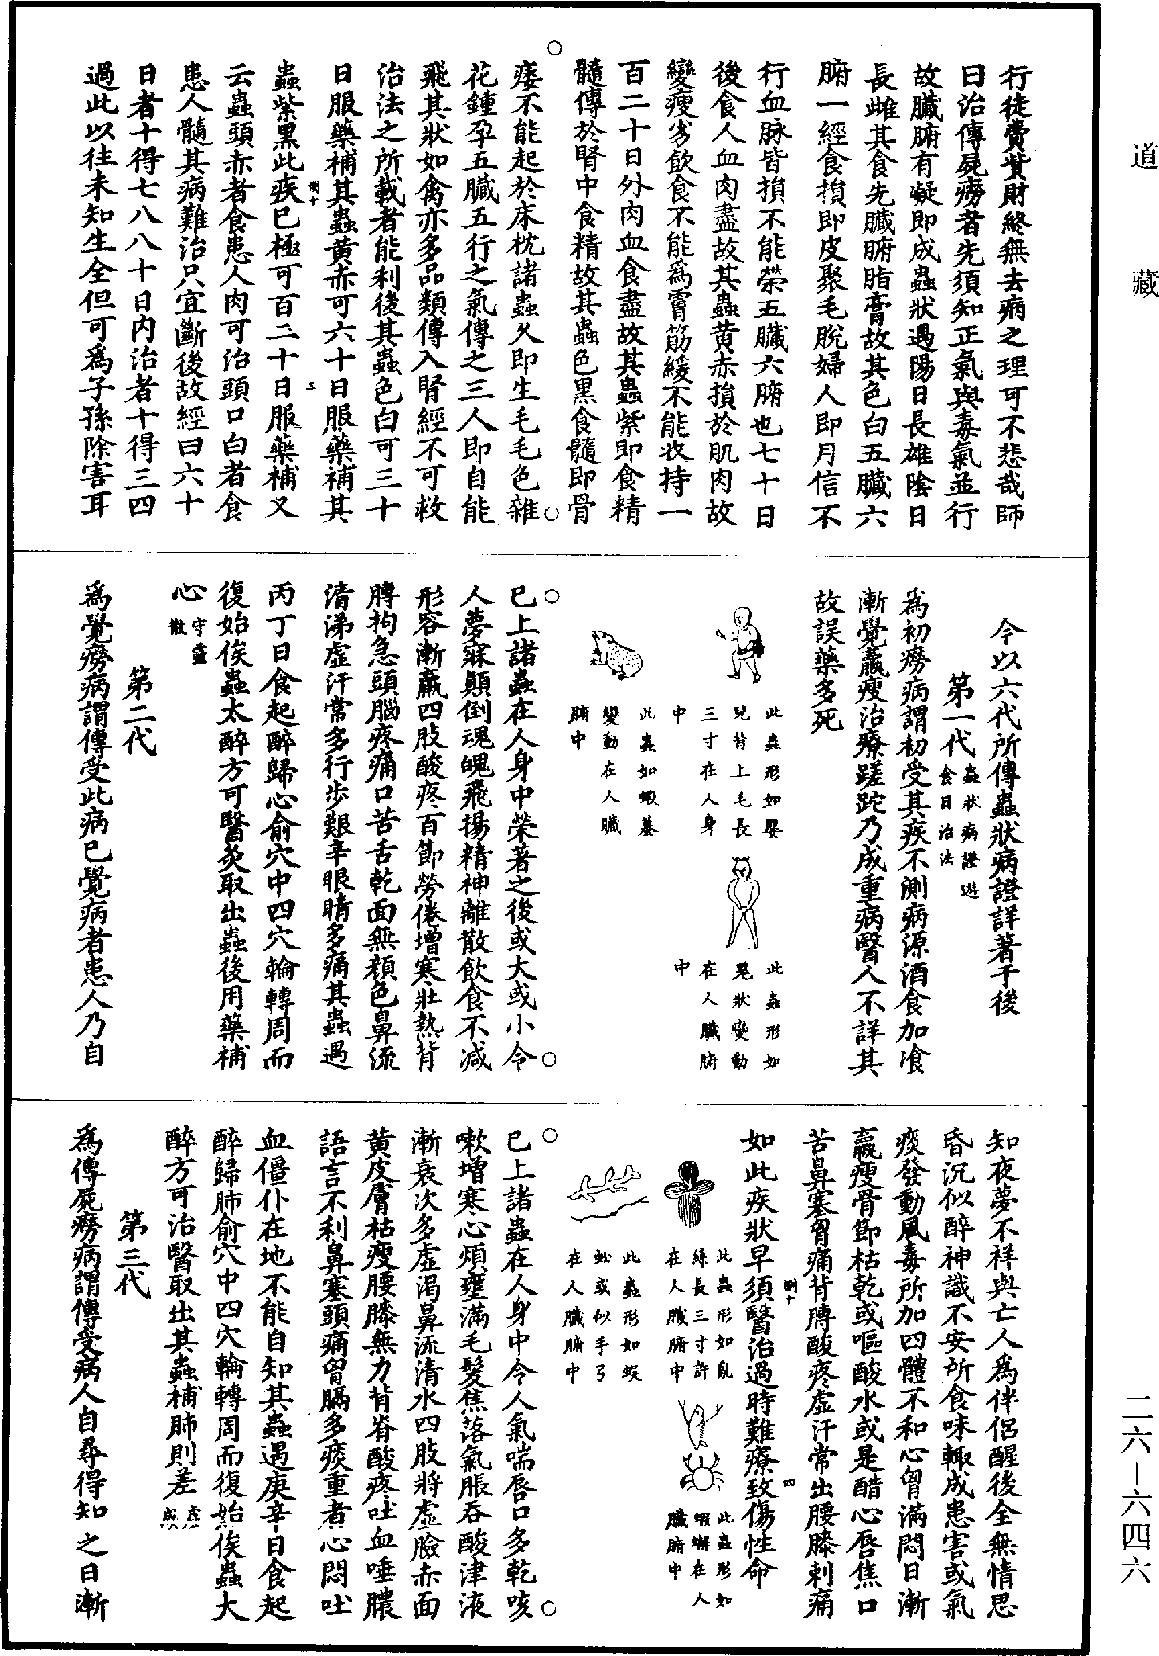 道藏
行徒費貲財終無去病之理可不悲哉師
曰治傳屍癆者先須知正氣與毒氣並行
故臟腑有礙即成蟲狀遇陽日長雄陰日
長雌其食先臟腑脂膏故其色白五臟六
腑一經食損即皮聚毛脫婦人即月信不
行血脉皆損不能榮五臟六腑也七十日
後食人血肉盡故其蟲黃赤損於肌肉故
變瘦劣飲食不能為𦟛筋緩不能收持一
百二十日外肉血食盡故其蟲紫即食精
髓傳於腎中食精故其蟲色黑食髓即骨
痿不能起於床枕諸蟲久即生毛毛色雜
花鍾孕五臟五行之氣傳之三人即自能
飛其狀如禽亦多品類傳入腎經不可救
治法之所載者能利後其蟲色白可三十
日服藥補其蟲黃赤可六十日服藥補其
蟲紫黑此疾已極可百二十日服藥補又
云蟲頭赤者食患人肉可治頭口白者食
患人髓其病難治只宜斷後故經曰六十
日者十得七八八十日內治者十得三四
過此以往未知生全但可為子孫除害耳
今以六代所傳蟲狀病證詳著于後
第一代 蟲狀病證遊食日治法
為初癆病謂初受其疾不測病源酒食加飡
漸覺羸瘦治療蹉跎乃成重病醫人不詳其
故誤藥多死
此蟲形如嬰
兒背上毛長
三寸在人身
中
此蟲形如
鬼狀變動
在人臟腑
中
此蟲如蝦蟇
變動在人臟
腑中
已上諸蟲在人身中榮著之後或大或小令
人夢寐顛倒魂魄飛揚精神離散飲食不減
形容漸羸四肢酸疼百節勞倦增寒壯熱背
膊拘急頭腦疼痛口苦舌乾面無顏色鼻流
清涕虛汗常多行步艱辛眼睛多痛其蟲遇
丙丁日食起醉歸心俞穴中四穴輪轉周而
復始俟蟲太醉方可醫灸取出蟲後用藥補
心 守靈散
第二代
為覺癆病謂傳受此病已覺病者患人乃自
知夜夢不祥與亡人為伴侶醒後全無情思
昏沉似醉神識不安所食味輒成患害或氣
痰發動風毒所加四體不和心胷滿悶日漸
羸瘦骨節枯乾或嘔酸水或是醋心唇焦口
苦鼻塞胷痛背膊酸疼虛汗常出腰膝刺痛
如此疾狀早須醫治過時難療致傷性命
此蟲形如亂
絲長三寸許
在人臟腑中
此蟲形如
蝦蠏在人
臟腑中
此蟲形如蜈
蚣或似手弓
在人臟腑中
已上諸蟲在人身中令人氣喘唇口多乾咳
嗽增寒心煩壅滿毛髮焦落氣脹吞酸津液
漸衰次多虛渴鼻流清水四肢將虛臉赤面
黃皮膚枯瘦腰膝無力背脊酸疼吐血唾膿
語言不利鼻塞頭痛胷膈多痰重者心悶吐
血僵仆在地不能自知其蟲遇庚辛日食起
醉歸肺俞穴中四穴輪轉周而復始俟蟲大
醉方可治醫取出其蟲補肺則差
第三代
為傳屍癆病謂傳受病人自尋得知之日漸
二六—六四六